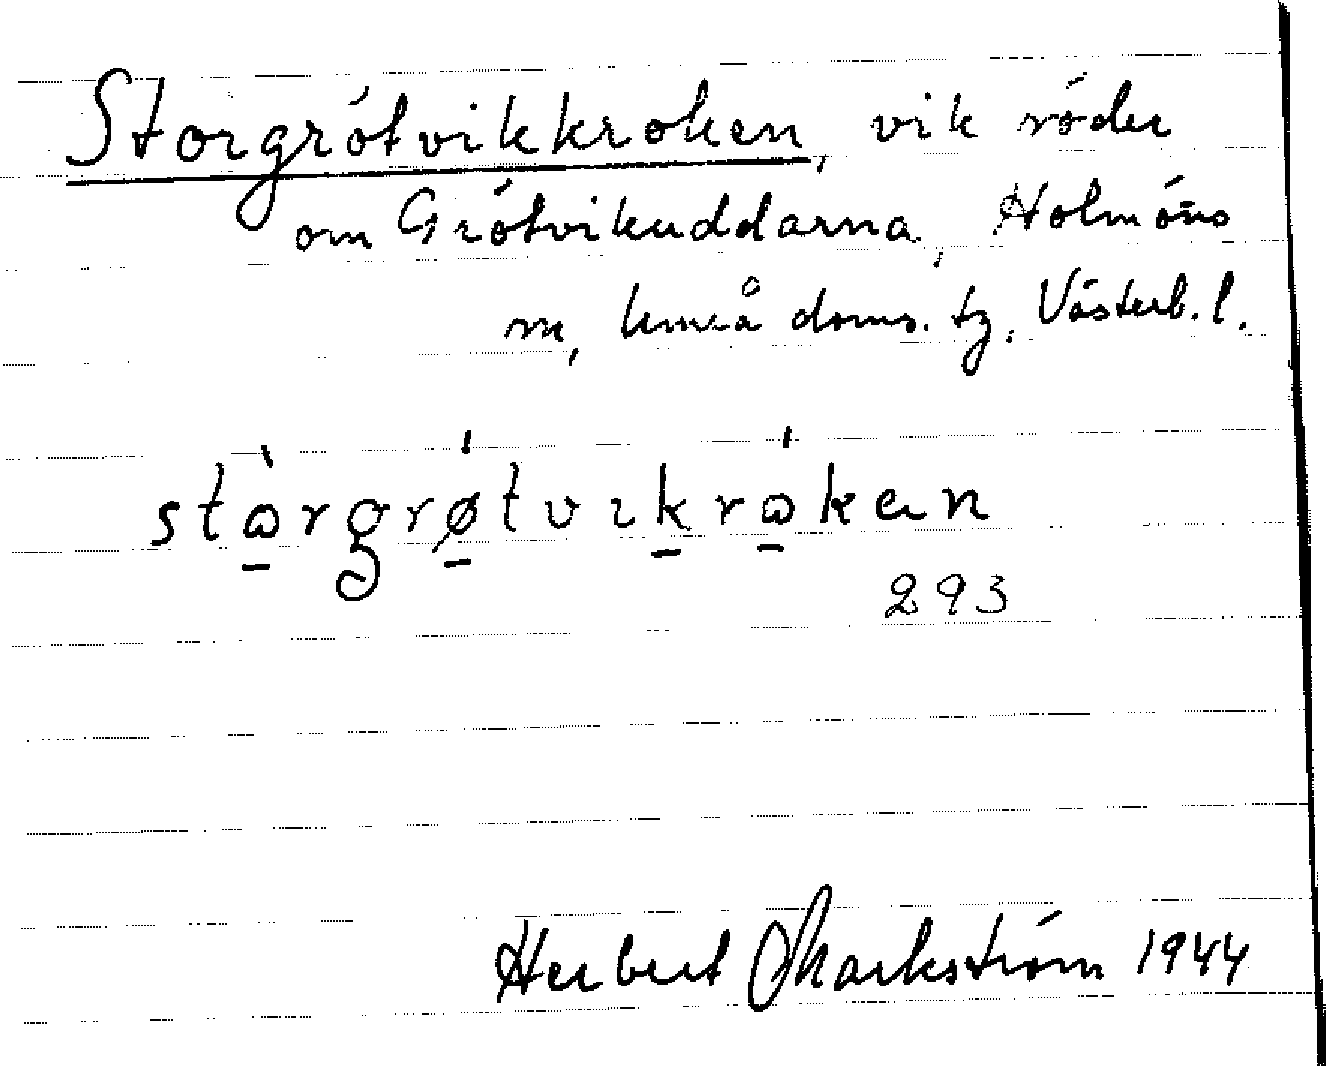 Storgrötvikkroken, vik söder
om Grötvikuddarna, Holmöns
sn, Umeå doms. tg. Västerb. l.
stòrgrǿtvikróken
293
Herbert Markström 1944